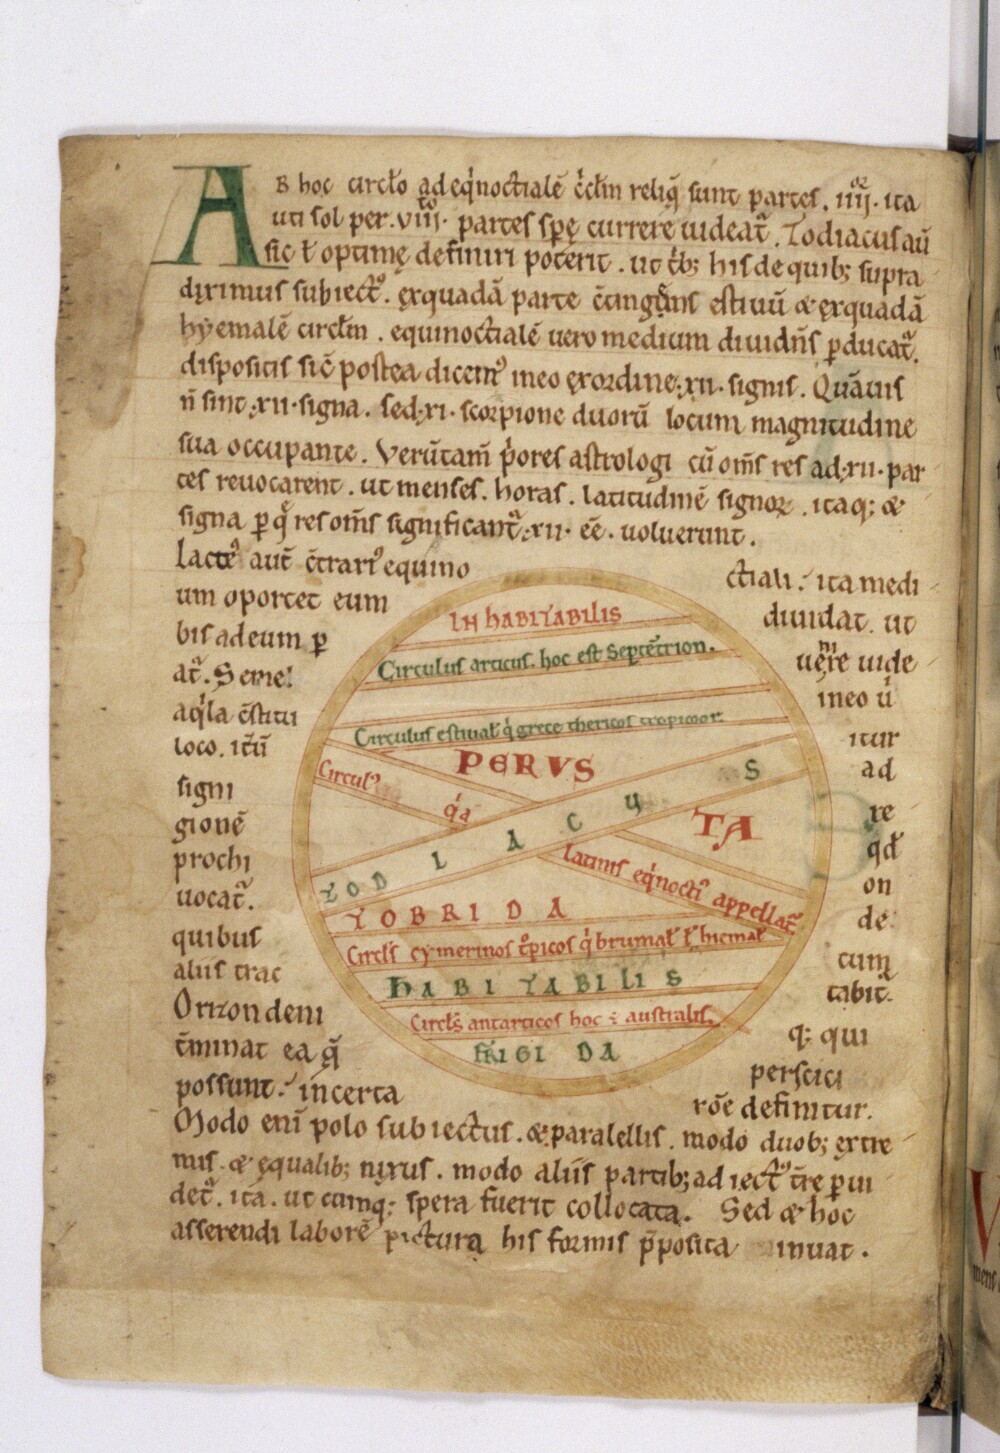 AB hoc circło adeq̇noctialē c̄cłm reliq̨ sunt partes. iiij.or ita
uti sol per. viii.to partes spę currere uideat᷑. Zodiacus aū
sic ł optimę definiri poterit. ut t̄b; his de quib; supra
diximus subiect᷒. exquadā parte c̄tingens estiuū & exquadā
hyemalē circłm. equinoctialē uero medium diuidn̄s ꝑducat᷑.
dispositis sic̄ postea dicem᷒ in eo exordine .xii. signis. Quāuis
n̄ sint .xii. signa. sed .xi. scorpione duorū locum magnitudine
sua occupante. Verūtam̄ ṗores astrologi cū om̄s res ad .xii. par
tes reuocarent. ut menses. horas. latitudinē signoꝝ. itaq; &
signa ꝑ q̨ res om̄s significant᷑ .xii. eē. uoluerunt.
Lacte᷒ aut̄ c̄trari᷒ equino ctiali. ita medi
um oportet eum diuidat. ut
bis ad eum ꝑ uenire uide
at᷑. Semel in eo u̇
aq̇la c̄stitu itur
loco. itū ad
signi re
gionē qđ
prochi on
uocat᷑. de
quibus cum
aliis trac tabit᷑.
Orizon deni q; qui
t̄minat ea q̨ perspici
possunt. incerta rōe definitur.
Modo eni polo subiectus. & paralellis. modo duob; extre
mis. & equalib; nixus. modo aliis partib; adiect᷒ t̄re ꝑui
det᷑. ita. ut cumq; spera fuerit collocata. Sed & hoc
asserendi laborē pictura his formis p̄posita inuat.
INHABITABILIS
Circulus articus. hoc est Septētrion.
Circulus estiuał q̇ grece thericos tropicor
PERUS
Circul᷒
q̇a
ZODIACUS
TA
Latinis eq̇nocti᷒ appellat᷑
ZOBRIDA
Circłs cymerinos t̊picos q̇ brumał ł hiemał
HABITABILIS
Circłs antarticos hoc ÷ australis.
FRIGIDA